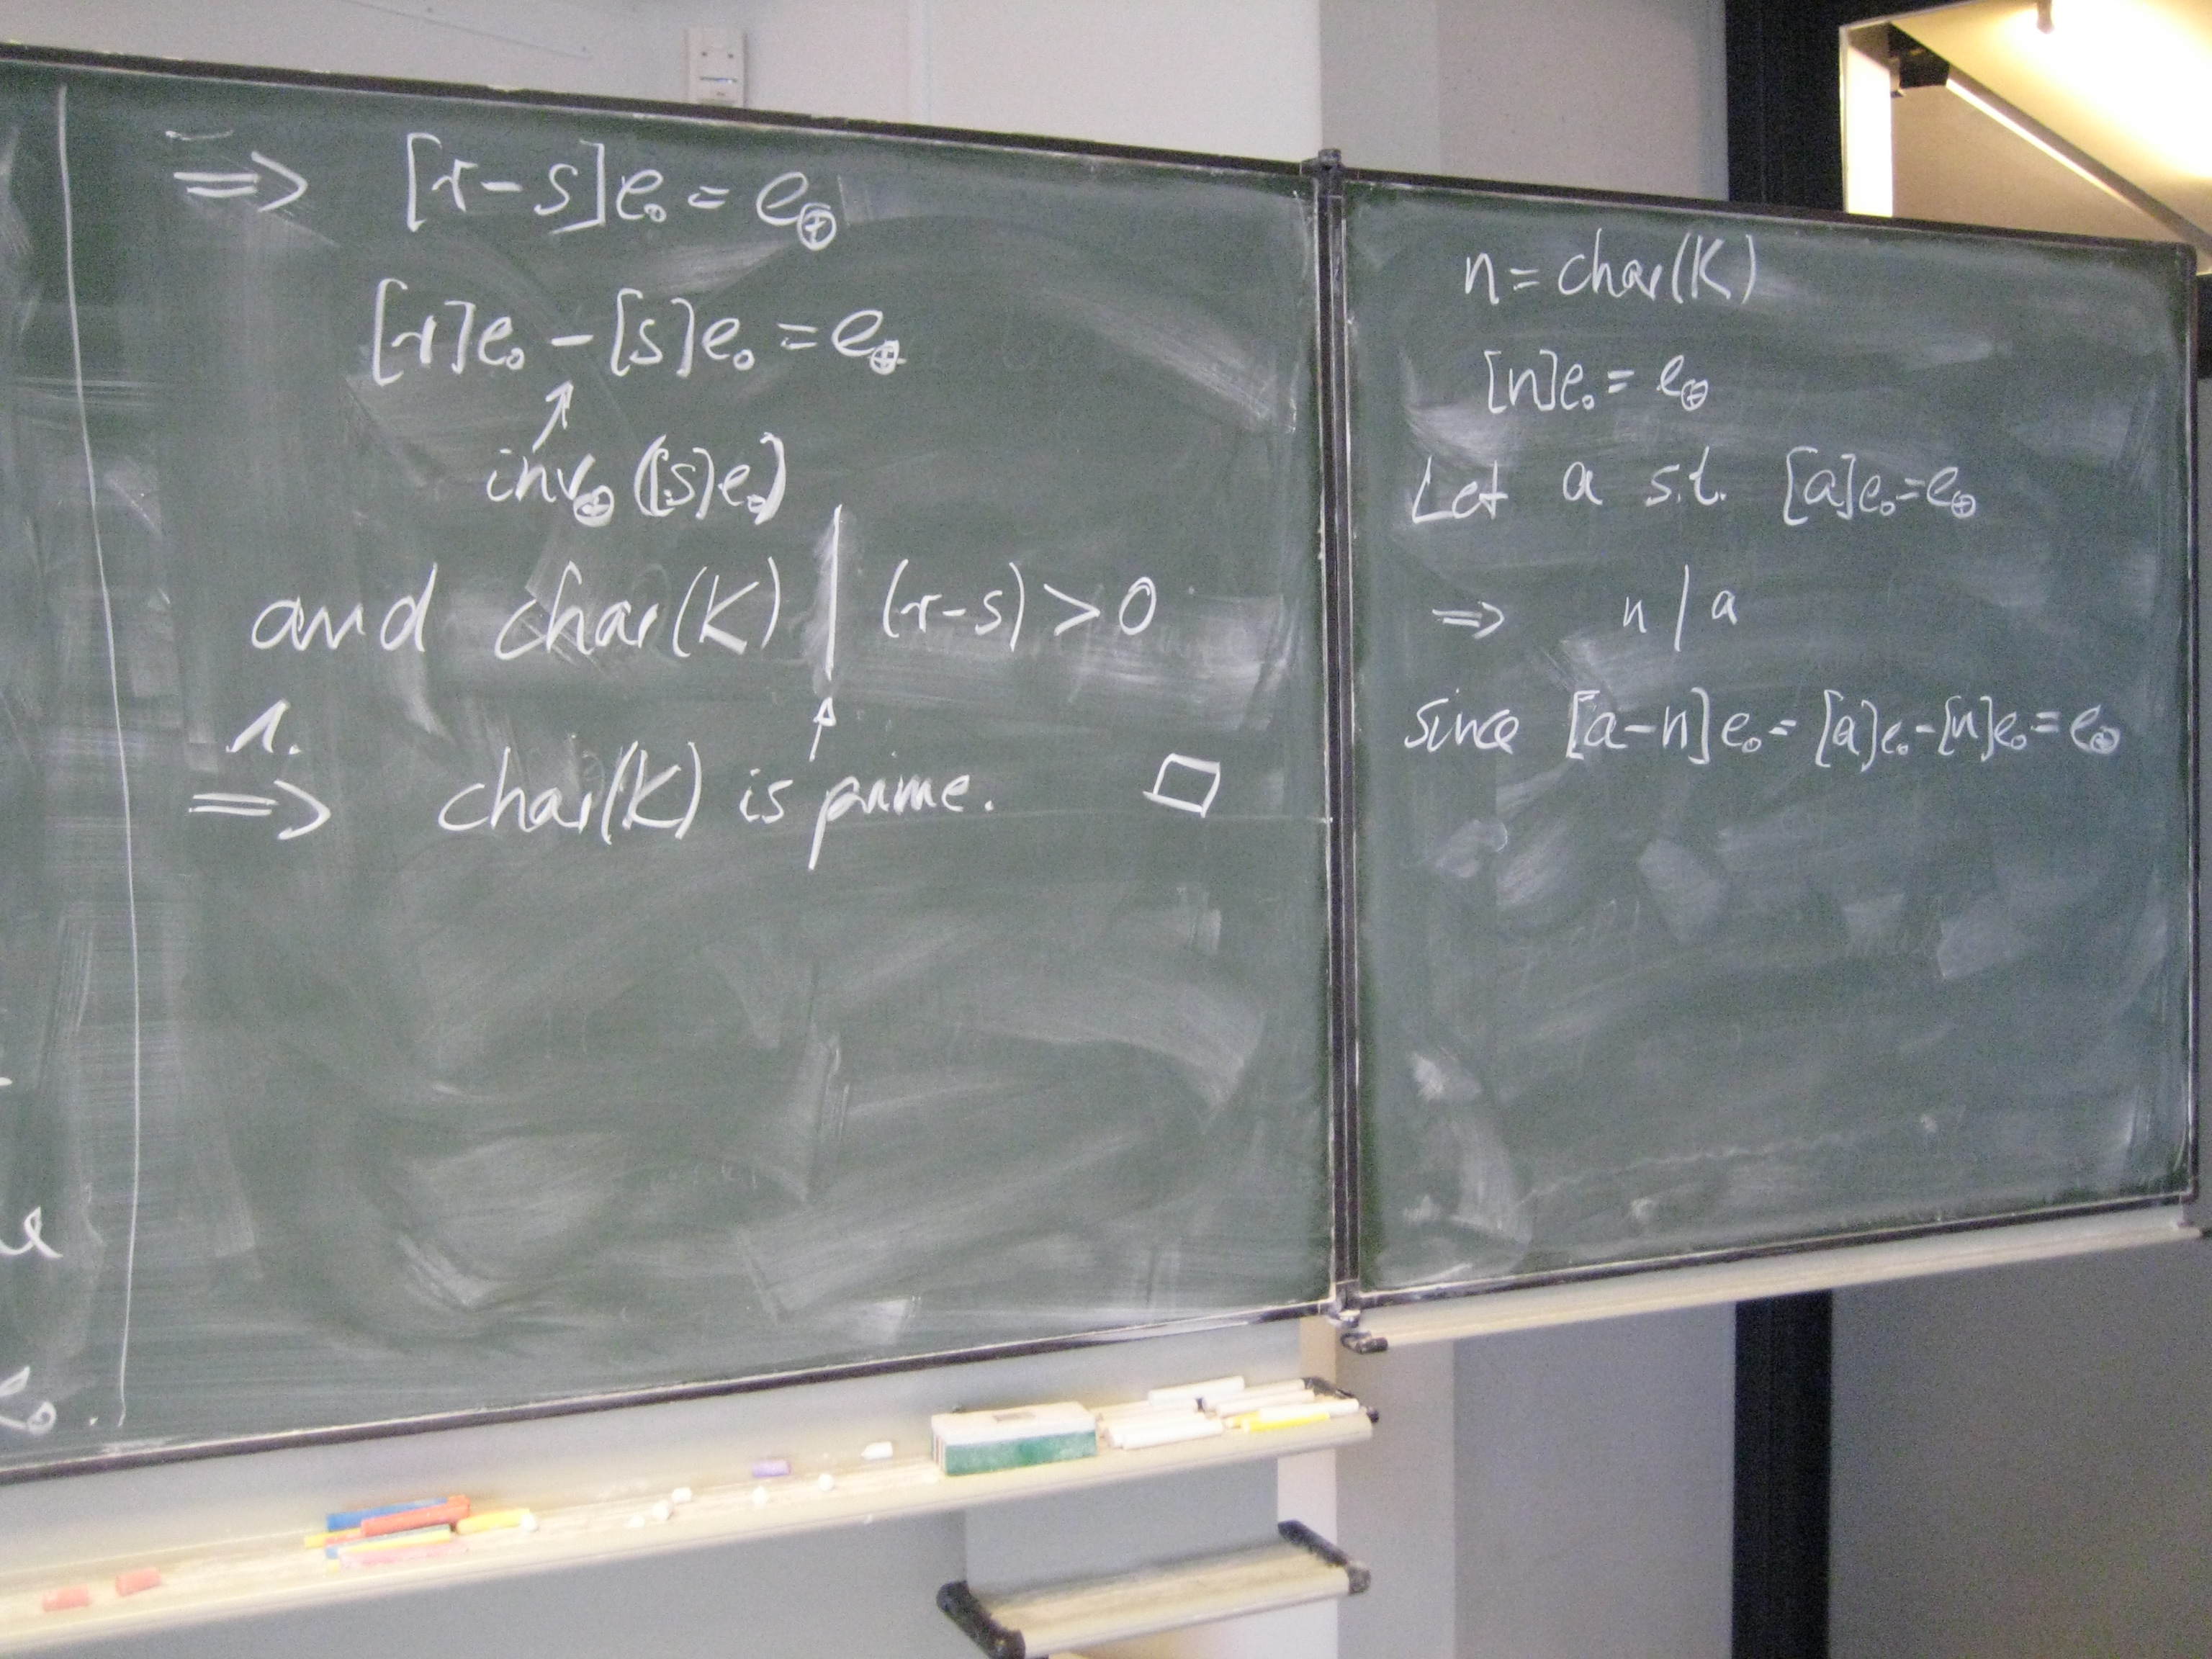 ⇒ [r-s]e∘ = e⊕
[r]e∘ - [s]e∘ = e⊕
↑
inv⊕([s]e∘)
and char(K) | (r-s) > 0
↑
1.
⇒ char(K) is prime. □
n = char(K)
[n]e∘ = e⊕
Let a s.t. [a]e∘ = e⊕
⇒ n | a
since [a-n]e∘ = [a]e∘ - [n]e∘ = e⊕